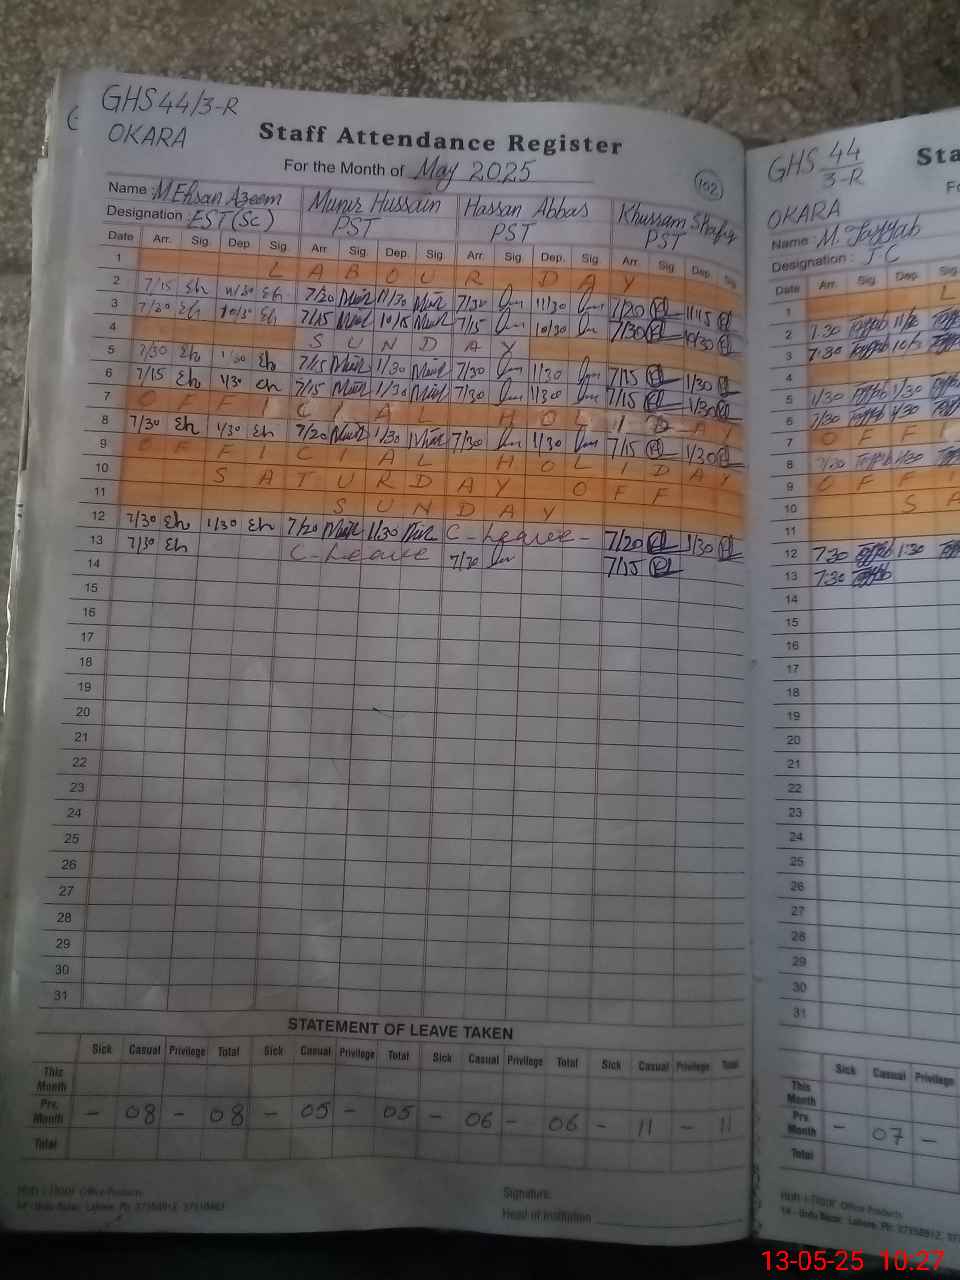 GHS 44/3-R
OKARA
Staff Attendance Register
For the Month of May 2025
102
Name : M Ehsan Azeem Munir Hussain Hassan Abbas Khurram Shafiq
Designation : EST(SC) PST PST PST
Date Arr. Sig. Dep. Sig. Arr. Sig. Dep. Sig. Arr. Sig. Dep. Sig. Arr. Sig. Dep. Sig.
1 LABOUR DAY
2 7/15 Eh 11/30 Eh 7/20 Munir 11/30 Munir 7/30 11/30 7/20 11/15
3 7/20 Eh 10/30 Eh 7/15 Munir 10/15 Munir 7/15 10/30 7/30 10/30
4 SUNDAY
5 7/30 Eh 1/30 Eh 7/15 Munir 1/30 Munir 7/30 1/30 7/15 1/30
6 7/15 Eh 1/30 Eh 7/15 Munir 1/30 Munir 7/30 1/30 7/15 1/30
7 OFFICIAL HOLIDAY
8 7/30 Eh 1/30 Eh 7/20 Munir 1/30 Munir 7/30 1/30 7/15 1/30
9 OFFICIAL HOLIDAY
10 SATURDAY OFF
11 SUNDAY
12 7/30 Eh 1/30 Eh 7/20 Munir 1/30 Munir C-Leave- 7/20 1/30
13 7/30 Eh C-Leave 7/30 7/15
14
15
16
17
18
19
20
21
22
23
24
25
26
27
28
29
30
31
STATEMENT OF LEAVE TAKEN
Sick Casual Privilege Total Sick Casual Privilege Total Sick Casual Privilege Total Sick Casual Privilege Total
This Month
Pre. Month - 08 - 08 - 05 - 05 - 06 - 06 - 11 - 11
Total
Signature:
Head of Institution
Office Products
14 - Urdu Bazar, Lahore. Ph: 37358912,
GHS 44/3-R
OKARA
Sta
Name : M. Tayyab
Designation :
Date Arr. Sig. Dep. Sig.
1 L
2 7:30 Tayyab 11/30 Tayyab
3 7:30 Tayyab Tayyab
4
5 Tayyab 1/30 Tayyab
6 7/30 Tayyab 1/30 Tayyab
7 OFFI
8 7/30 Tayyab 1/30 Tayyab
9 OFFI
10 SA
11
12 7:30 Tayyab 1:30 Tayyab
13 7:30 Tayyab
14
15
16
17
18
19
20
21
22
23
24
25
26
27
28
29
30
31
Sick Casual Privilege
This Month
Pre. Month - 07 -
Total
Office Products
14 - Urdu Bazar, Lahore. Ph: 37358912,
13-05-25 10:27